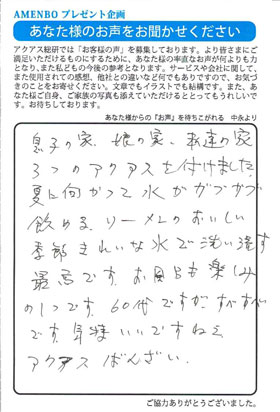 AMENBO プレゼント企画
あなた様のお声をお聞かせください
アクアス総研では「お客様の声」を募集しております。より皆さまにご
満足いただけるものにするために、あなた様の率直なお声が何よりも力
となり、また私どもの今後の参考となります。サービスや会社に関して、
また使用されての感想、他社との違いなど何でもありですので、お気づ
きのことをお寄せください。文章でもイラストでも結構です。また、あ
なた様ご自身、ご家族の写真も添えていただけるととってもうれしいで
す。お待ちしております。
あなた様からの『お声』を待ちこがれる 中永より
息子の家、娘の家、我達の家
3つのアクアスを付けました
夏に向かって水がガブガブ
飲める、ソーメンのおいしい
季節きれいな水で洗い流す
最高です。お風呂も楽しみ
の1つです。60代ですが、すがすが
です。気持いいですねえ
アクアス ばんざい。
ご協力ありがとうございました。